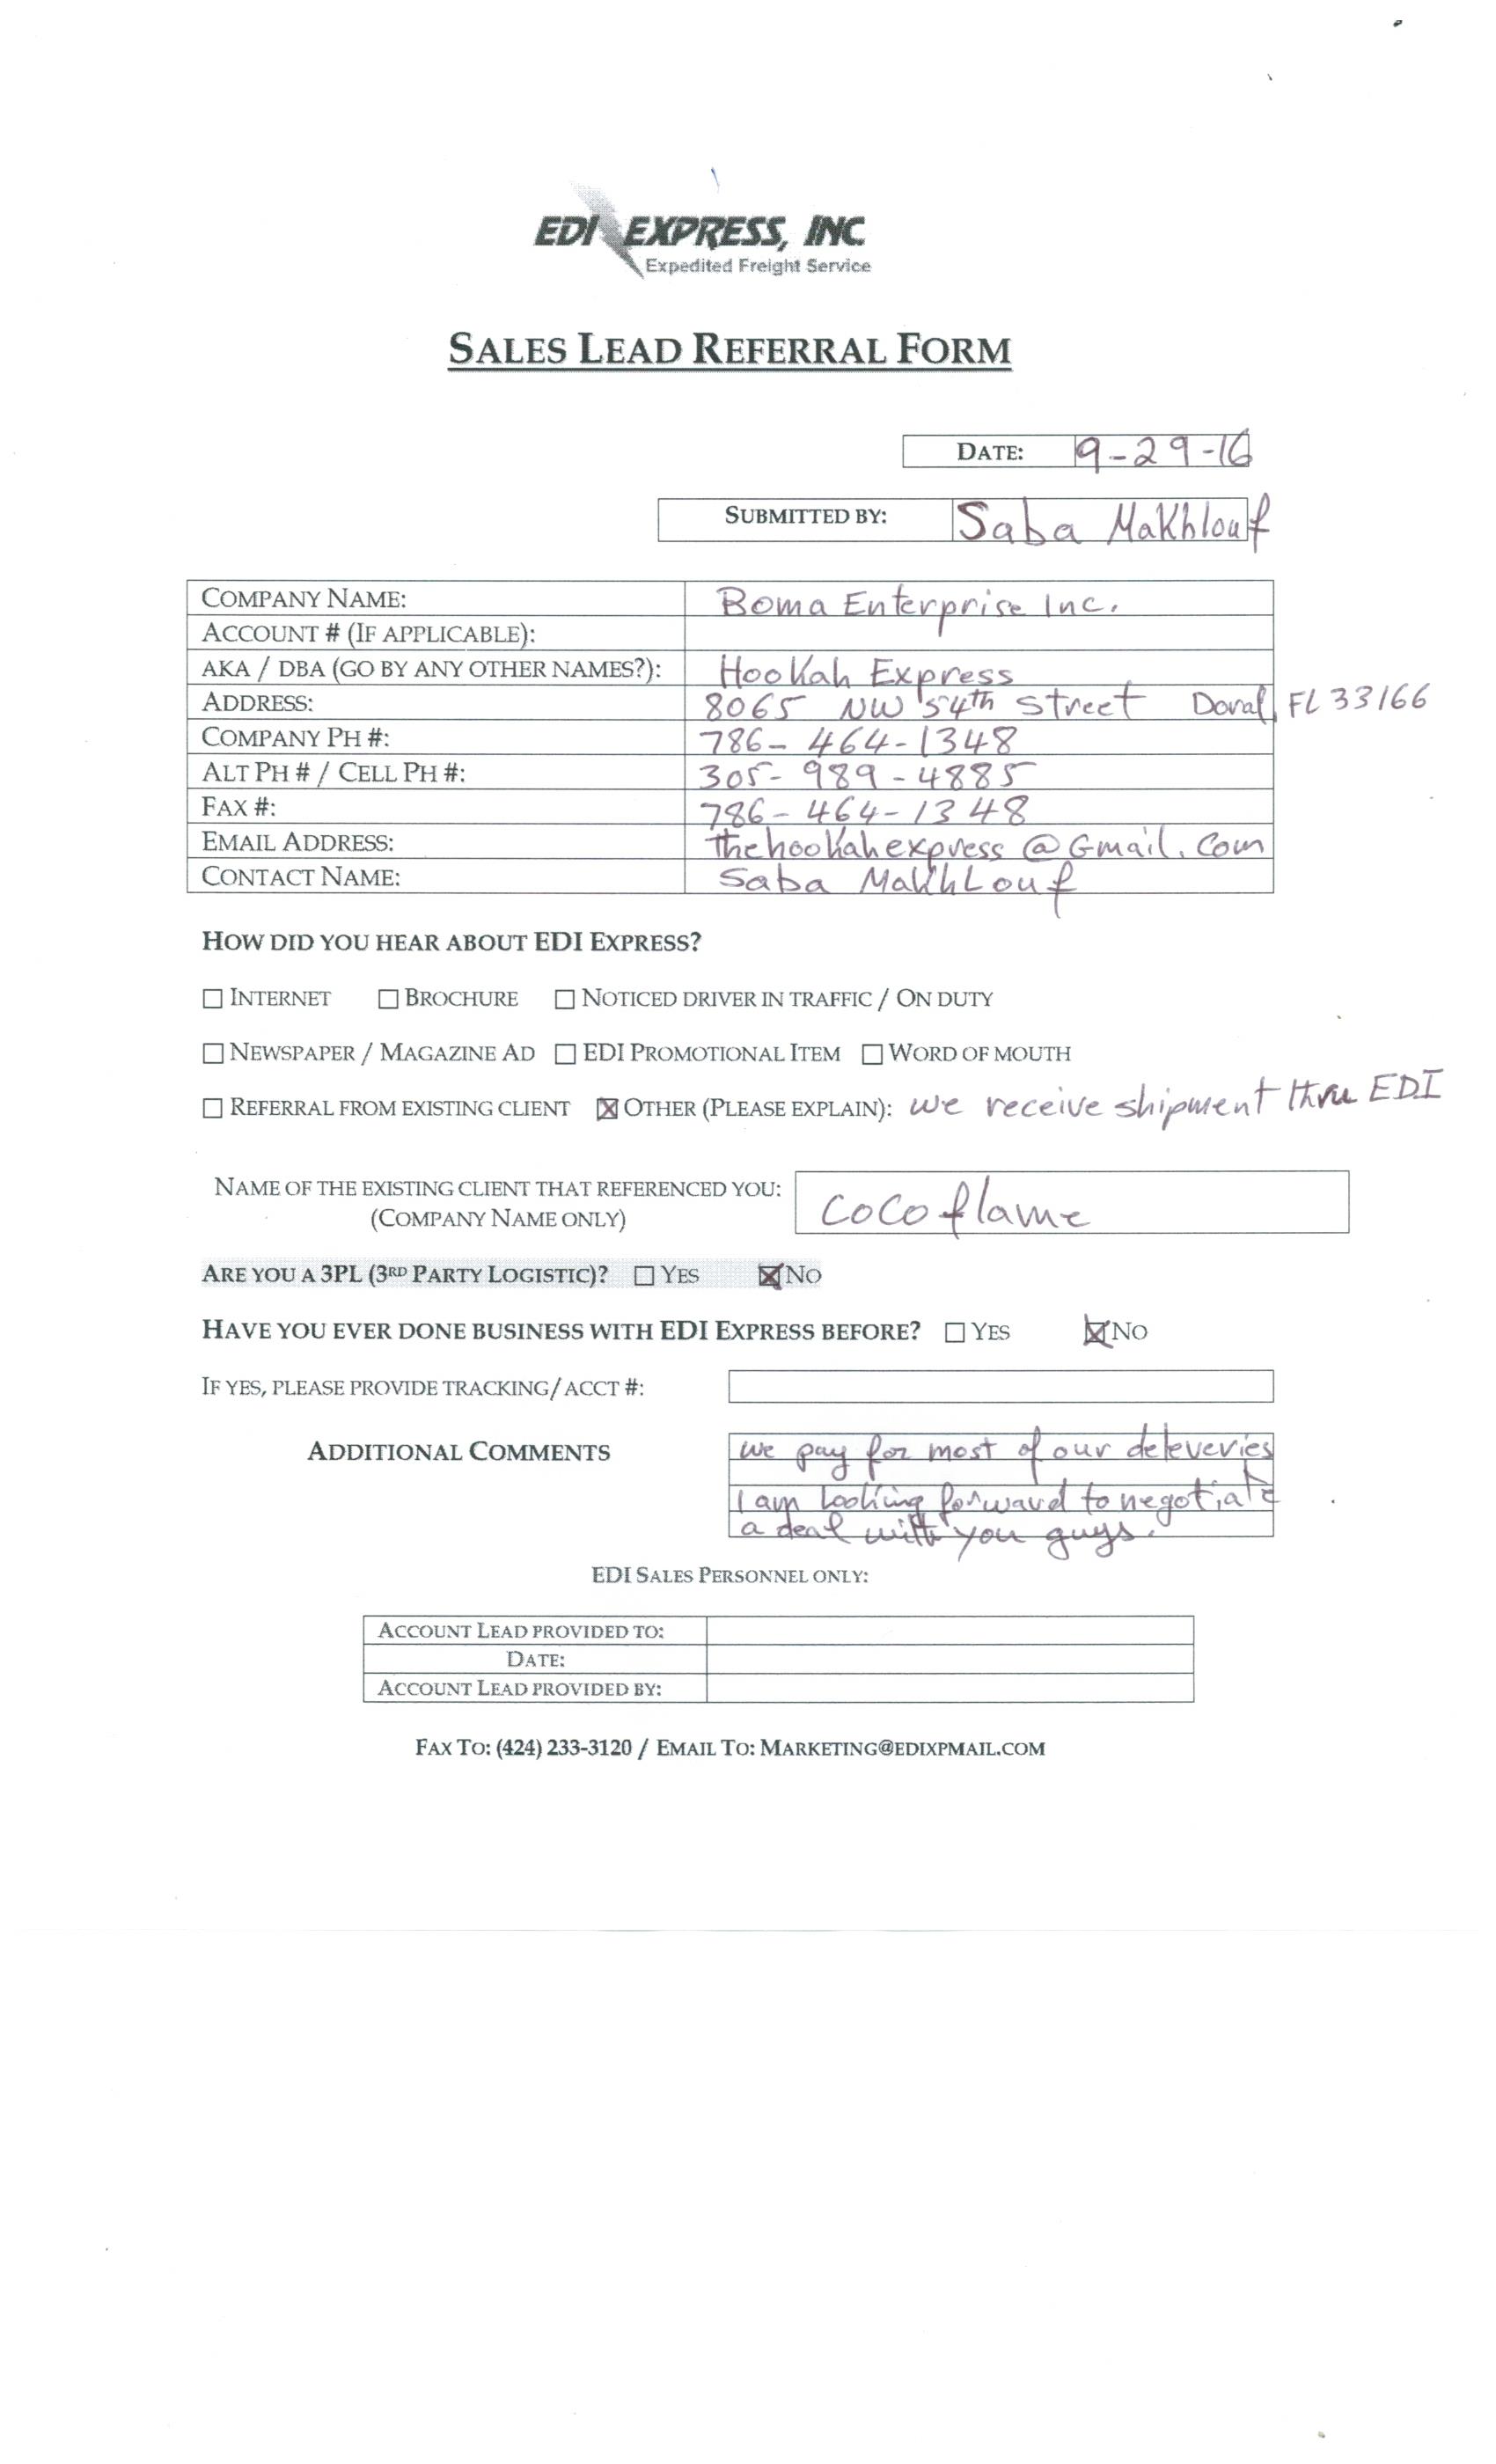 EDI EXPRESS, INC
Expedited Freight Service
SALES LEAD REFERRAL FORM
DATE: 9-29-16
SUBMITTED BY: Saba Makhlouf
COMPANY NAME: Boma Enterprise Inc.
ACCOUNT # (IF APPLICABLE):
AKA / DBA (GO BY ANY OTHER NAMES?): Hookah Express
ADDRESS: 8065 NW 54th Street Doral, FL 33166
COMPANY PH #: 786-464-1348
ALT PH # / CELL PH #: 305-989-4885
FAX #: 786-464-1348
EMAIL ADDRESS: thehookahexpress@Gmail.Com
CONTACT NAME: Saba MakhLouf
HOW DID YOU HEAR ABOUT EDI EXPRESS?
☐ INTERNET ☐ BROCHURE ☐ NOTICED DRIVER IN TRAFFIC / ON DUTY
☐ NEWSPAPER / MAGAZINE AD ☐ EDI PROMOTIONAL ITEM ☐ WORD OF MOUTH
☐ REFERRAL FROM EXISTING CLIENT ☒ OTHER (PLEASE EXPLAIN): we receive shipment thru EDI
NAME OF THE EXISTING CLIENT THAT REFERENCED YOU: Cocoflame
(COMPANY NAME ONLY)
ARE YOU A 3PL (3RD PARTY LOGISTIC)? ☐ YES ☒ NO
HAVE YOU EVER DONE BUSINESS WITH EDI EXPRESS BEFORE? ☐ YES ☒ NO
IF YES, PLEASE PROVIDE TRACKING/ACCT #:
ADDITIONAL COMMENTS we pay for most of our deleveries
I am looking forward to negotiate
a deal with you guys.
EDI SALES PERSONNEL ONLY:
ACCOUNT LEAD PROVIDED TO:
DATE:
ACCOUNT LEAD PROVIDED BY:
FAX TO: (424) 233-3120 / EMAIL TO: MARKETING@EDIXPMAIL.COM